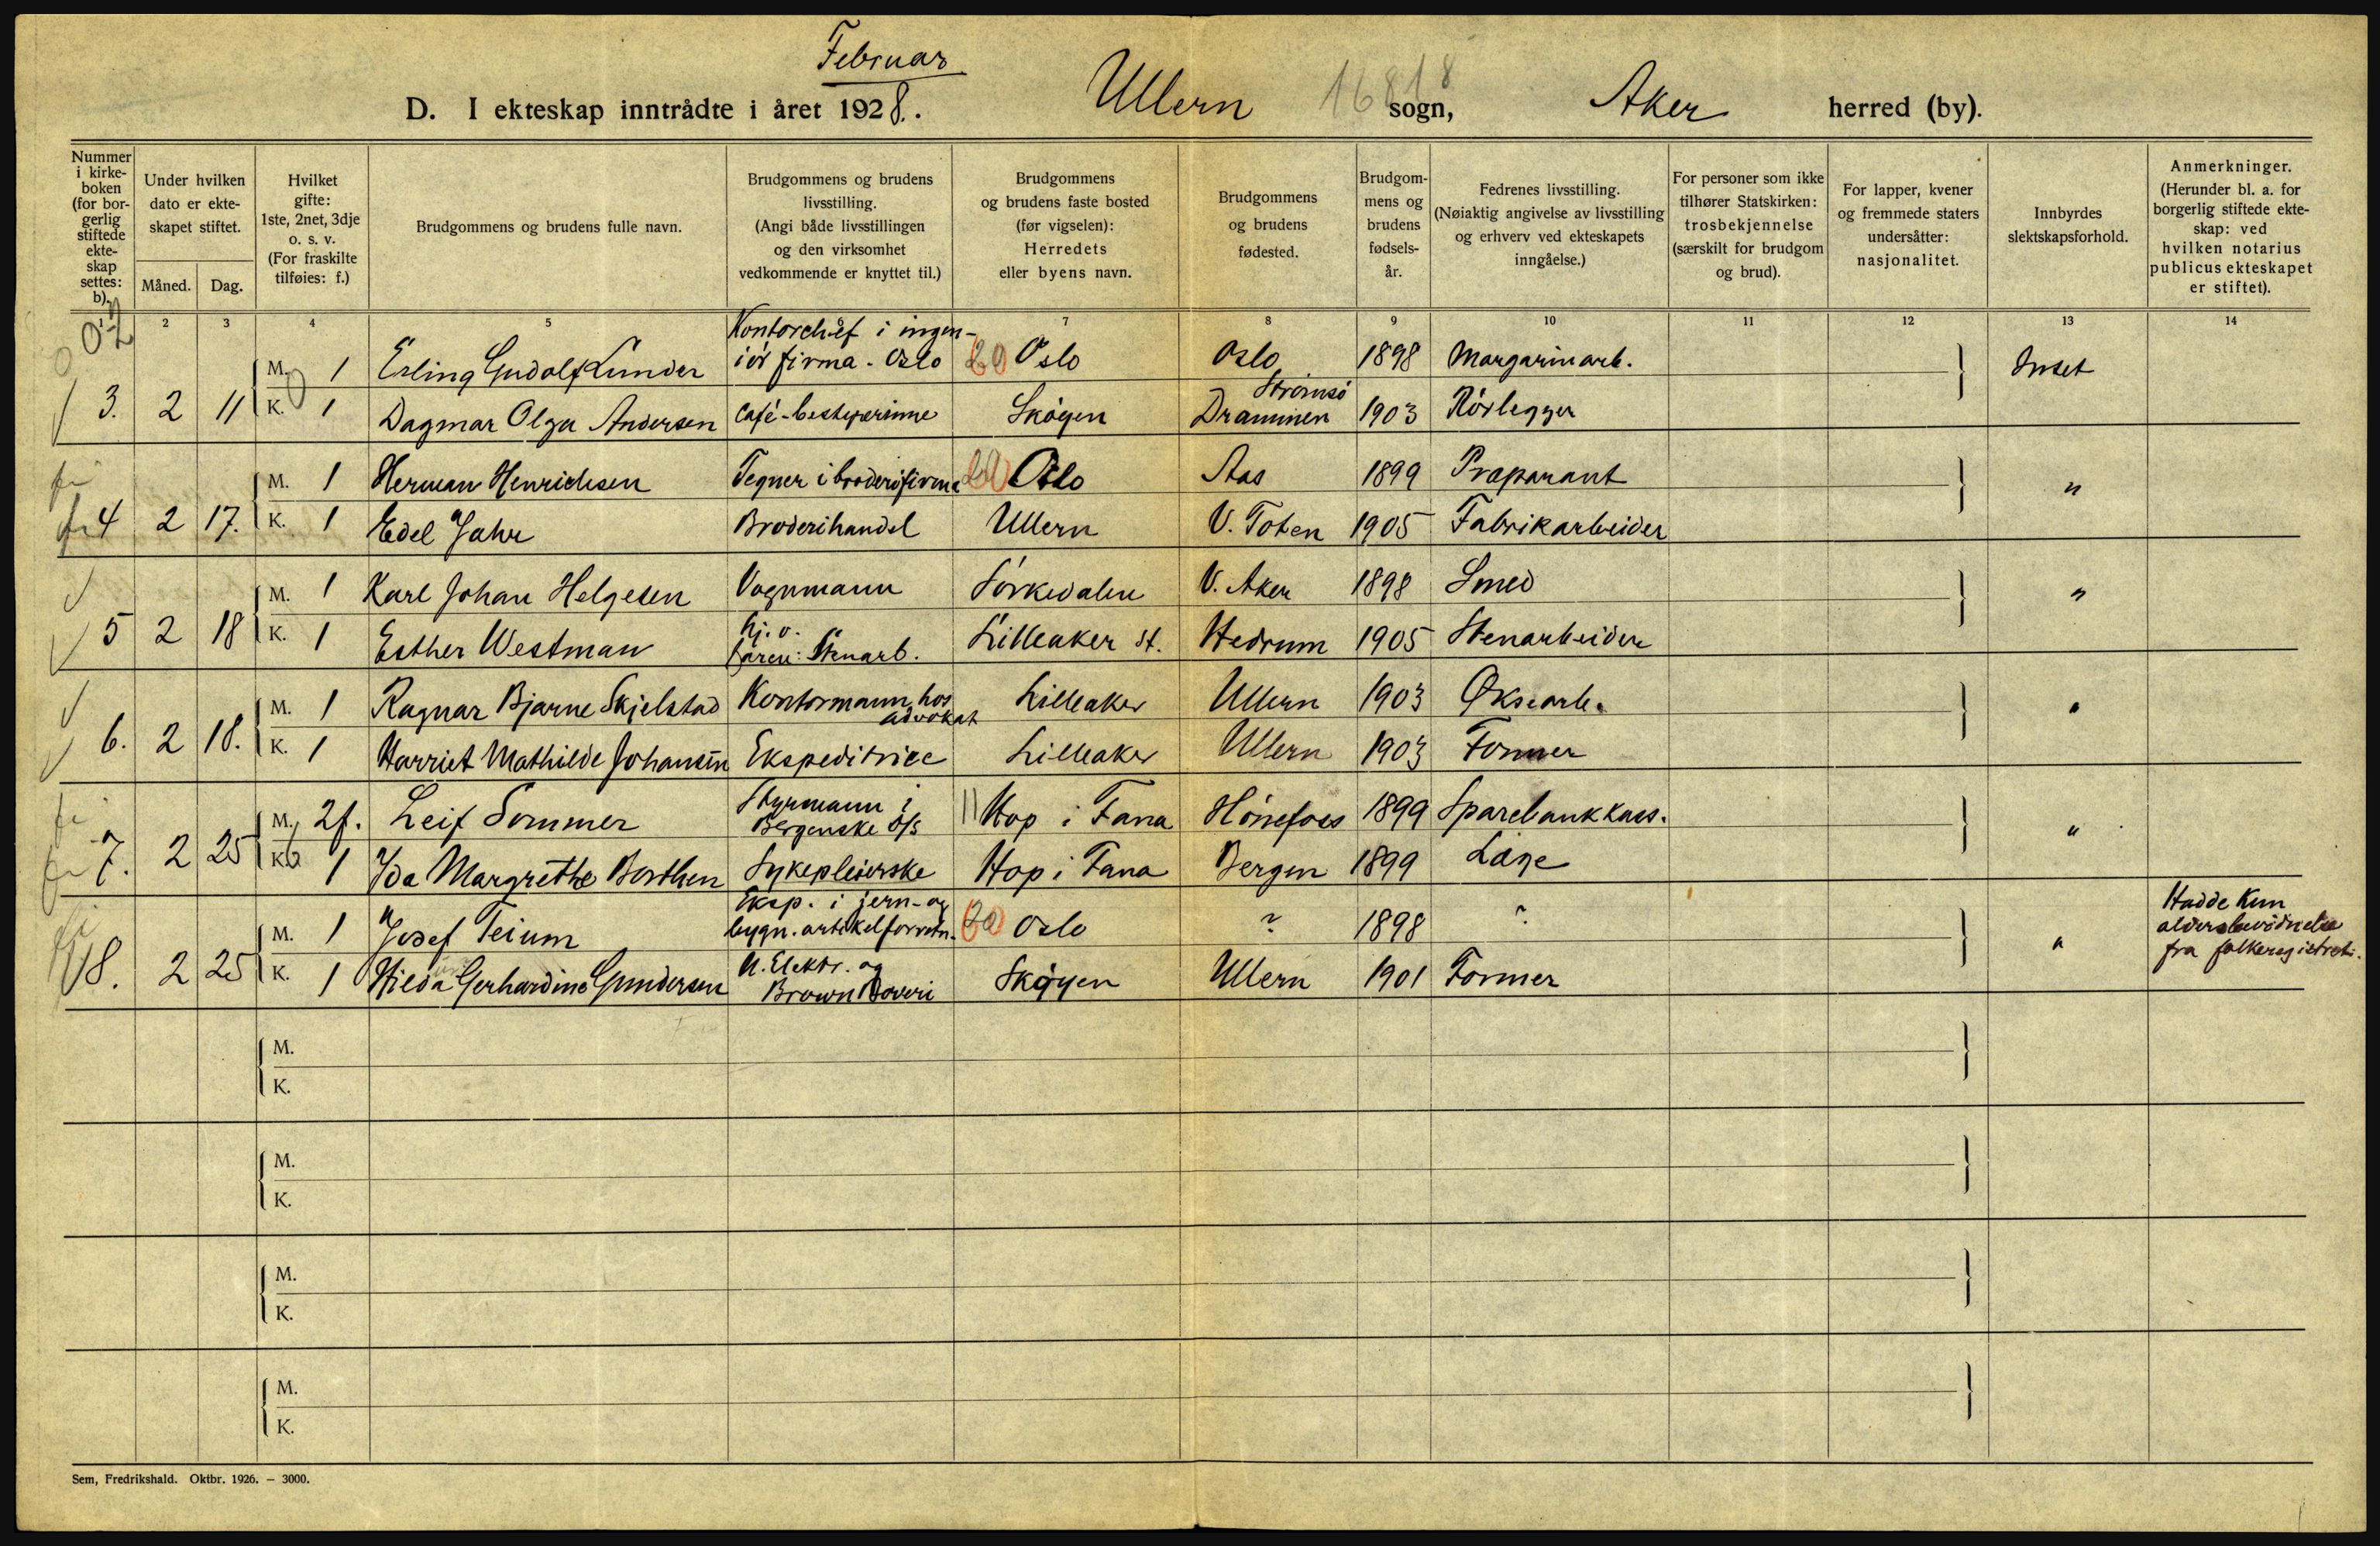 Februar
D. I ekteskap inntrådte i året 1928. Ullern 16818 sogn, Aker herred (by).
Nummer i kirkeboken (for borgerlig stiftede ekteskap settes: b).
Under hvilken dato er ekteskapet stiftet.
Måned. Dag.
Hvilket gifte: 1ste, 2net, 3dje o. s. v. (For fraskilte tilføies: f.)
Brudgommens og brudens fulle navn.
Brudgommens og brudens livsstilling. (Angi både livsstillingen og den virksomhet vedkommende er knyttet til.)
Brudgommens og brudens faste bosted (før vigselen): Herredets eller byens navn.
Brudgommens og brudens fødested.
Brudgommens og brudens fødselsår.
Fedrenes livsstilling. (Nøiaktig angivelse av livsstilling og erhverv ved ekteskapets inngåelse.)
For personer som ikke tilhører Statskirken: trosbekjennelse (særskilt for brudgom og brud).
For lapper, kvener og fremmede staters undersåtter: nasjonalitet.
Innbyrdes slektskapsforhold.
Anmerkninger. (Herunder bl. a. for borgerlig stiftede ekteskap: ved hvilken notarius publicus ekteskapet er stiftet).
1 2 3 4 5 6 7 8 9 10 11 12 13 14
M. 1 Erling Gudolf Lunder Kontorchef i ingeniör firma - Oslo 20 Oslo Oslo 1898 Margarinarb. Intet
3. 2 11 K. 1 Dagmar Olga Andersen Café-bestyrerinne Skøyen Strømsö Drammen 1903 Rörlegger
M. 1 Herman Henrichsen Tegner i broderifirma 20 Oslo Aas 1899 Præparant "
4 2 17. K. 1 Edel Jahr Broderihandel Ullern V. Toten 1905 Fabrikarbeider
M. 1 Karl Johan Helgesen Vognmann Sørkedalen V. Aker 1898 Smed "
5 2 18 K. 1 Esther Westman Hj. v. faren: Stenarb. Lilleaker st. Hedrum 1905 Stenarbeider
M. 1 Ragnar Bjarne Skjelstad Kontormann hos advokat Lilleaker Ullern 1903 Øksearb. "
6. 2 18. K. 1 Harriet Mathilde Johansen Ekspeditrice Lilleaker Ullern 1903 Former
M. 2f. Leif Sommer Styrmann i Bergenske D/S 11 Hop i Fana Hönefoss 1899 Sparebankkass. "
7. 2 25 K. 1 Ida Margrethe Borthen Sykepleierske Hop i Fana Bergen 1899 Læge
M. 1 Josef Teium Eksp. i jern- og bygn. artikelforretn. 20 Oslo ? 1898 ? " Hadde kun aldersbevidnelse fra folkeregistret.
8. 2 25 K. 1 Hilda Gerhardine Gundersen N. Elektr. og Brown Boveri Skøyen Ullern 1901 Former
M.
K.
M.
K.
M.
K.
M.
K.
Sem, Fredrikshald. Oktbr. 1926. – 3000.